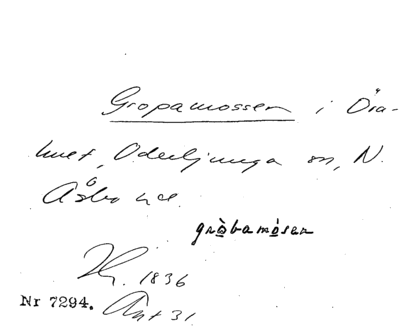 Gropamossen i Öra-
huset, Oderljunga sn, N.
Åsbo hd.
gròbamósen
1836
Nr 7294. Ant 31